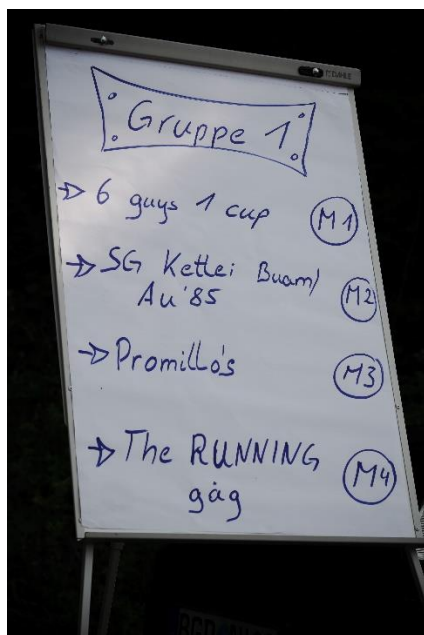 Gruppe 1
→ 6 guys 1 cup M1
→ SG Ketlei Buam/ M2
Au'85
→ Promillo's M3
→ The RUNNING M4
gag